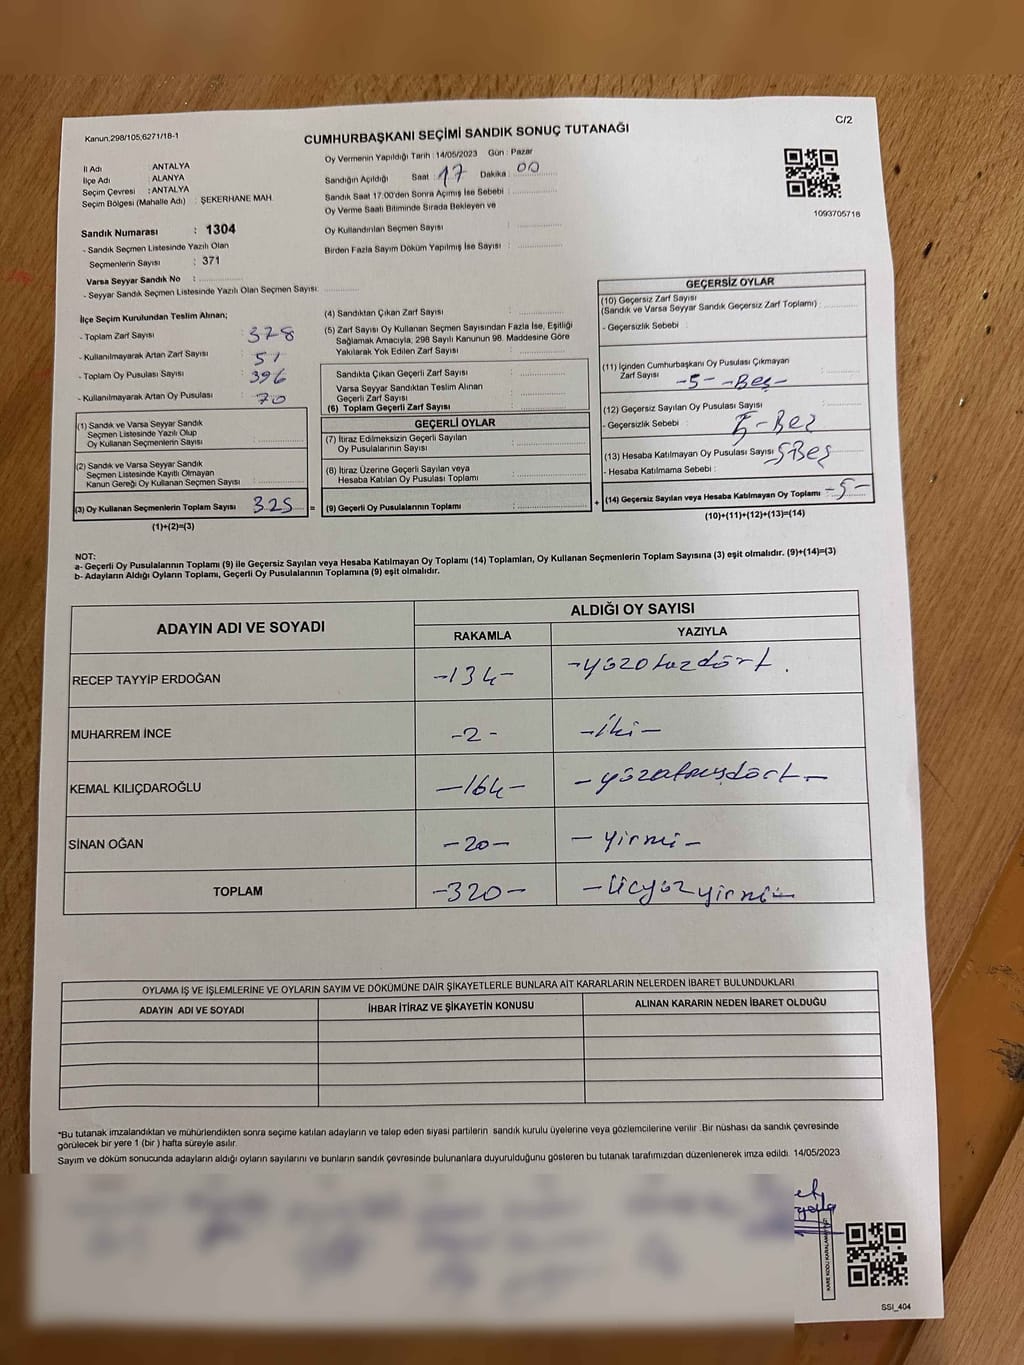 Kanun,298/105,6271/18-1
CUMHURBAŞKANI SEÇİMİ SANDIK SONUÇ TUTANAĞI
C/2
İl Adı : ANTALYA
İlçe Adı : ALANYA
Seçim Çevresi : ANTALYA
Seçim Bölgesi (Mahalle Adı) : ŞEKERHANE MAH.
Oy Vermenin Yapıldığı Tarih : 14/05/2023 Gün : Pazar
Sandığın Açıldığı Saat : 17 Dakika : 00
Sandık Saat 17.00'den Sonra Açılmış İse Sebebi :
Oy Verme Saati Bitiminde Sırada Bekleyen ve
Oy Kullandırılan Seçmen Sayısı :
Birden Fazla Sayım Döküm Yapılmış İse Sayısı :
1093705718
Sandık Numarası : 1304
- Sandık Seçmen Listesinde Yazılı Olan
Seçmenlerin Sayısı : 371
Varsa Seyyar Sandık No :
- Seyyar Sandık Seçmen Listesinde Yazılı Olan Seçmen Sayısı:
İlçe Seçim Kurulundan Teslim Alınan;
- Toplam Zarf Sayısı : 378
- Kullanılmayarak Artan Zarf Sayısı : 51
- Toplam Oy Pusulası Sayısı : 396
- Kullanılmayarak Artan Oy Pusulası : 70
(1) Sandık ve Varsa Seyyar Sandık
Seçmen Listesinde Yazılı Olup
Oy Kullanan Seçmenlerin Sayısı :
(2) Sandık ve Varsa Seyyar Sandık
Seçmen Listesinde Kayıtlı Olmayan
Kanun Gereği Oy Kullanan Seçmen Sayısı :
(3) Oy Kullanan Seçmenlerin Toplam Sayısı : 325 =
(1)+(2)=(3)
(4) Sandıktan Çıkan Zarf Sayısı :
(5) Zarf Sayısı Oy Kullanan Seçmen Sayısından Fazla İse, Eşitliği
Sağlamak Amacıyla, 298 Sayılı Kanunun 98. Maddesine Göre
Yakılarak Yok Edilen Zarf Sayısı :
Sandıkta Çıkan Geçerli Zarf Sayısı :
Varsa Seyyar Sandıktan Teslim Alınan
Geçerli Zarf Sayısı :
(6) Toplam Geçerli Zarf Sayısı :
GEÇERLİ OYLAR
(7) İtiraz Edilmeksizin Geçerli Sayılan
Oy Pusulalarının Sayısı :
(8) İtiraz Üzerine Geçerli Sayılan veya
Hesaba Katılan Oy Pusulası Toplamı :
(9) Geçerli Oy Pusulalarının Toplamı : +
GEÇERSİZ OYLAR
(10) Geçersiz Zarf Sayısı
(Sandık ve Varsa Seyyar Sandık Geçersiz Zarf Toplamı) :
- Geçersizlik Sebebi :
(11) İçinden Cumhurbaşkanı Oy Pusulası Çıkmayan
Zarf Sayısı : -5- -Beş-
(12) Geçersiz Sayılan Oy Pusulası Sayısı :
- Geçersizlik Sebebi : 5-Beş
(13) Hesaba Katılmayan Oy Pusulası Sayısı : 5Beş
- Hesaba Katılmama Sebebi :
(14) Geçersiz Sayılan veya Hesaba Katılmayan Oy Toplamı : -5-
(10)+(11)+(12)+(13)=(14)
NOT:
a- Geçerli Oy Pusulalarının Toplamı (9) ile Geçersiz Sayılan veya Hesaba Katılmayan Oy Toplamı (14) Toplamları, Oy Kullanan Seçmenlerin Toplam Sayısına (3) eşit olmalıdır. (9)+(14)=(3)
b- Adayların Aldığı Oyların Toplamı, Geçerli Oy Pusulalarının Toplamına (9) eşit olmalıdır.
ADAYIN ADI VE SOYADI
ALDIĞI OY SAYISI
RAKAMLA YAZIYLA
RECEP TAYYİP ERDOĞAN -134- -yüzotuzdört.
MUHARREM İNCE -2- -iki-
KEMAL KILIÇDAROĞLU -164- -yüzaltmışdört-
SİNAN OĞAN -20- -yirmi-
TOPLAM -320- -üçyüzyirmi-
OYLAMA İŞ VE İŞLEMLERİNE VE OYLARIN SAYIM VE DÖKÜMÜNE DAİR ŞİKAYETLERLE BUNLARA AİT KARARLARIN NELERDEN İBARET BULUNDUKLARI
ADAYIN ADI VE SOYADI İHBAR İTİRAZ VE ŞİKAYETİN KONUSU ALINAN KARARIN NEDEN İBARET OLDUĞU
*Bu tutanak imzalandıktan ve mühürlendikten sonra seçime katılan adayların ve talep eden siyasi partilerin sandık kurulu üyelerine veya gözlemcilerine verilir. Bir nüshası da sandık çevresinde
görülecek bir yere 1 (bir) hafta süreyle asılır.
Sayım ve döküm sonucunda adayların aldığı oyların sayılarını ve bunların sandık çevresinde bulunanlara duyurulduğunu gösteren bu tutanak tarafımızdan düzenlenerek imza edildi. 14/05/2023
SSI_404